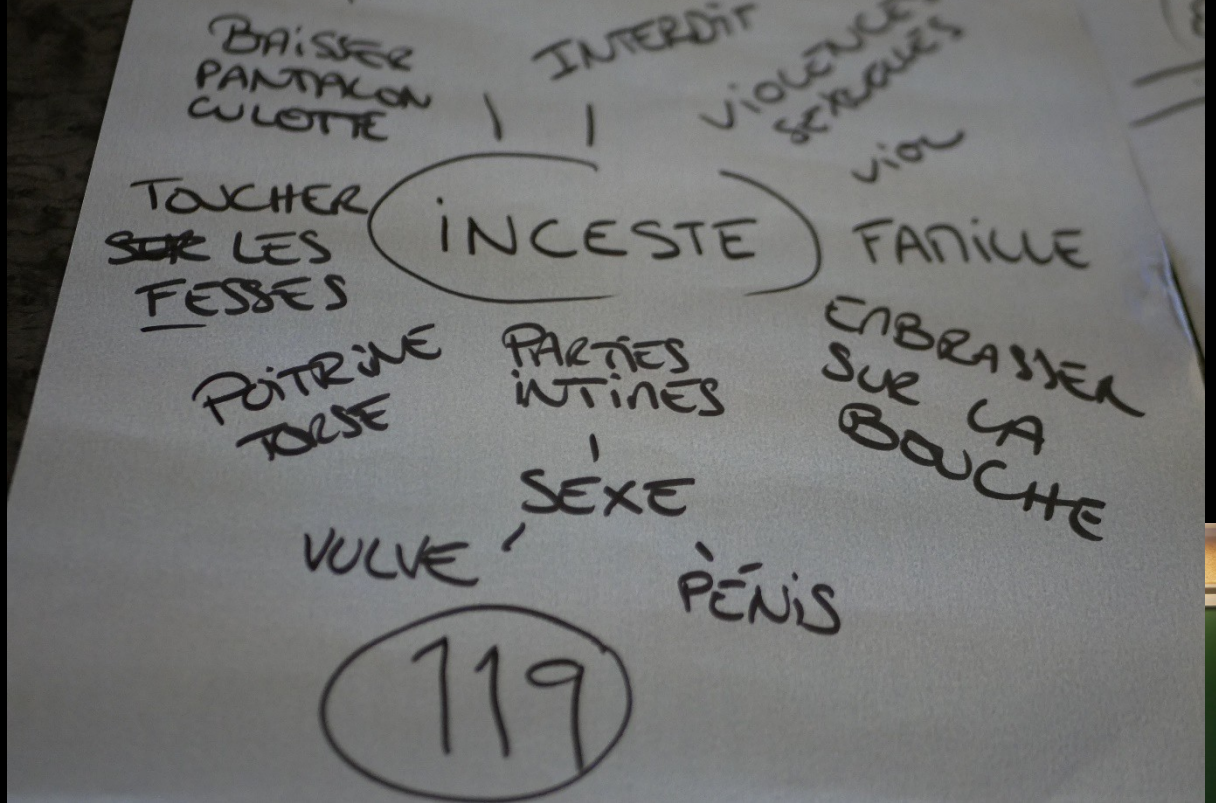 BAISSER
PANTALON
CULOTTE
INTERDIT
VIOLENCES
SEXUELLES
VIOL
TOUCHER
SUR LES
FESSES
INCESTE
FAMILLE
POITRINE
TORSE
PARTIES
INTIMES
EMBRASSER
SUR LA
BOUCHE
SEXE
VULVE
PÉNIS
119